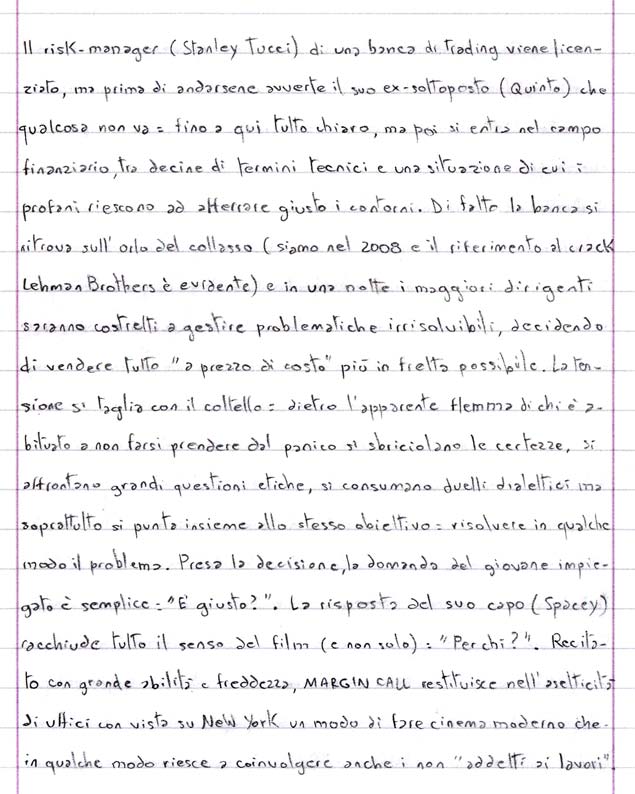 Il risk-manager (Stanley Tucci) di una banca di trading viene licen-
ziato, ma prima di andarsene avverte il suo ex-sottoposto (Quinto) che
qualcosa non va = fino a qui tutto chiaro, ma poi si entra nel campo
finanziario, tra decine di termini tecnici e una situazione di cui i
profani riescono ad afferrare giusto i contorni. Di fatto la banca si
ritrova sull'orlo del collasso (siamo nel 2008 e il riferimento al crack
Lehman Brothers è evidente) e in una notte i maggiori dirigenti
saranno costretti a gestire problematiche irrisolvibili, decidendo
di vendere tutto "a prezzo di costo" più in fretta possibile. La ten-
sione si taglia con il coltello = dietro l'apparente flemma di chi è a-
bituato a non farsi prendere dal panico si sbriciolano le certezze, si
affrontano grandi questioni etiche, si consumano duelli dialettici ma
soprattutto si punta insieme allo stesso obiettivo = risolvere in qualche
modo il problema. Presa la decisione, la domanda del giovane impie-
gato è semplice = "E' giusto?". La risposta del suo capo (Spacey)
racchiude tutto il senso del film (e non solo) = "Per chi?". Recita-
to con grande abilità e freddezza, MARGIN CALL restituisce nell'asetticità
di uffici con vista su New York un modo di fare cinema moderno che
in qualche modo riesce a coinvolgere anche i non "addetti ai lavori".